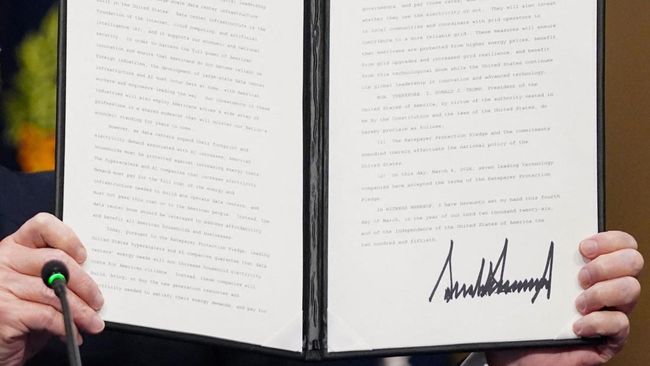 leadership
data center infrastructure
foundation of the internet, cloud computing, and artificial
intelligence (AI), and it supports our economic and national
security. In order to harness the full power of American
innovation and ensure that Americans do not become reliant on
foreign industries, the development of large-scale data center
infrastructure and AI must occur at home, with American
workers and engineers leading the way. Our investments in these
industries will also employ Americans across a wide array of
professions in a shared endeavor that will bolster our Nation's
economic standing for years to come.
However, as data centers expand their footprint and
electricity demand associated with AI increases, American
households must be protected against increasing energy costs.
The hyperscalers and AI companies that increase electricity
demand must pay for the full cost of the energy and
infrastructure needed to build and operate data centers, and
must not pass this cost on to the American people. Instead, the
data center boom should be leveraged to address affordability
and benefit all American households and businesses.
Today, pursuant to the Ratepayer Protection Pledge, leading
United States hyperscalers and AI companies guarantee that data
centers' energy needs will not increase household electricity
costs for American citizens. Instead, these companies will
build, bring, or buy the new generation resources and
electricity needed to satisfy their energy demands, and pay for
governments, and pay those rates
whether they use the electricity or not. They will also invest
in local communities and coordinate with grid operators to
contribute to a more reliable grid. These measures will ensure
that Americans are protected from higher energy prices, benefit
from grid upgrades and increased grid resilience, and benefit
from this technological boom while the United States continues
its global leadership in innovation and advanced technology.
NOW, THEREFORE, I, DONALD J. TRUMP, President of the
United States of America, by virtue of the authority vested in
me by the Constitution and the laws of the United States, do
hereby proclaim as follows:
(1) The Ratepayer Protection Pledge and the commitments
therein effectuate the national policy of the
United States.
(2) On this day, March 4, 2026, seven leading technology
companies have accepted the terms of the Ratepayer Protection
Pledge.
IN WITNESS WHEREOF, I have hereunto set my hand this fourth
day of March, in the year of our Lord two thousand twenty-six,
and of the Independence of the United States of America the
two hundred and fiftieth.